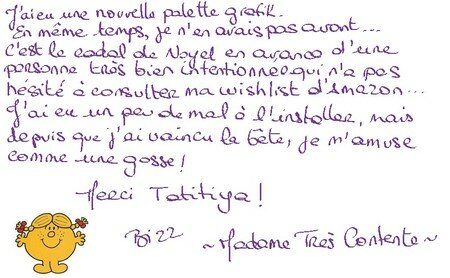 J'ai eu une nouvelle palette grafik.
En même temps, je n'en avais pas avant...
c'est le cadal de Noyel en avance d'une
personne très bien intentionner qui n'a pas
hésité à consulter ma wishlist d'Amazon...
J'ai eu un peu de mal à l'installer, mais
depuis que j'ai vaincu la bête, je m'amuse
comme une gosse!
Merci Tatitiya!
Bizz
~Madame Très Contente~